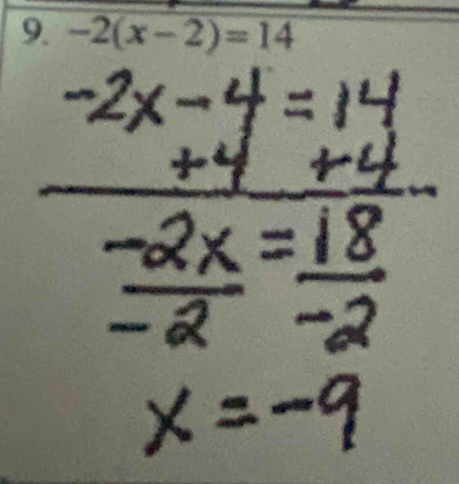 9. -2(x-2)=14
-2x-4=14
+4 +4
-2x=18
-2 -2
x=-9